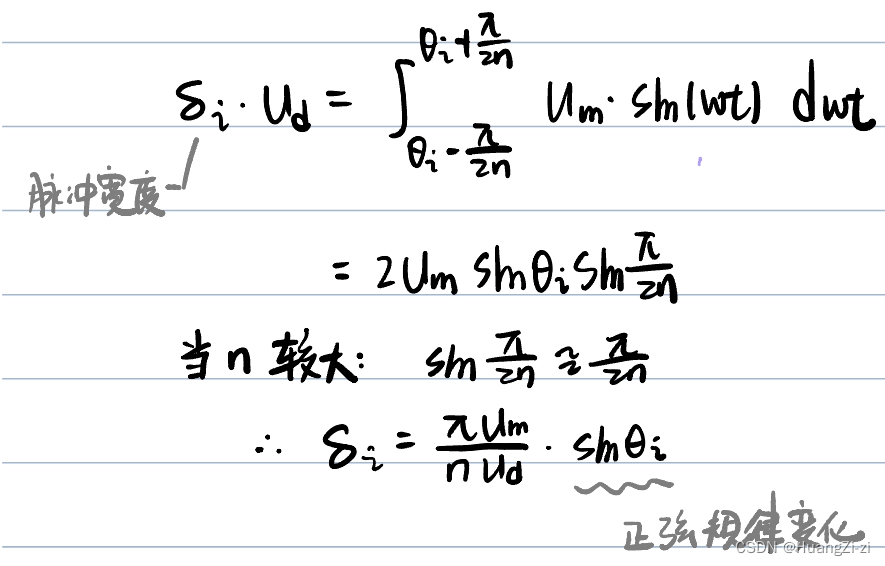 δᵢ · U_d = ∫_{θᵢ - π/2n}^{θᵢ + π/2n} U_m · sin(wt) dwt
脉冲宽度
= 2U_m sinθᵢ sin π/2n
当 n 较大: sin π/2n ≈ π/2n
∴ δᵢ = πU_m/nU_d · sinθᵢ
正弦规律变化
CSDN @HuangZi-zi